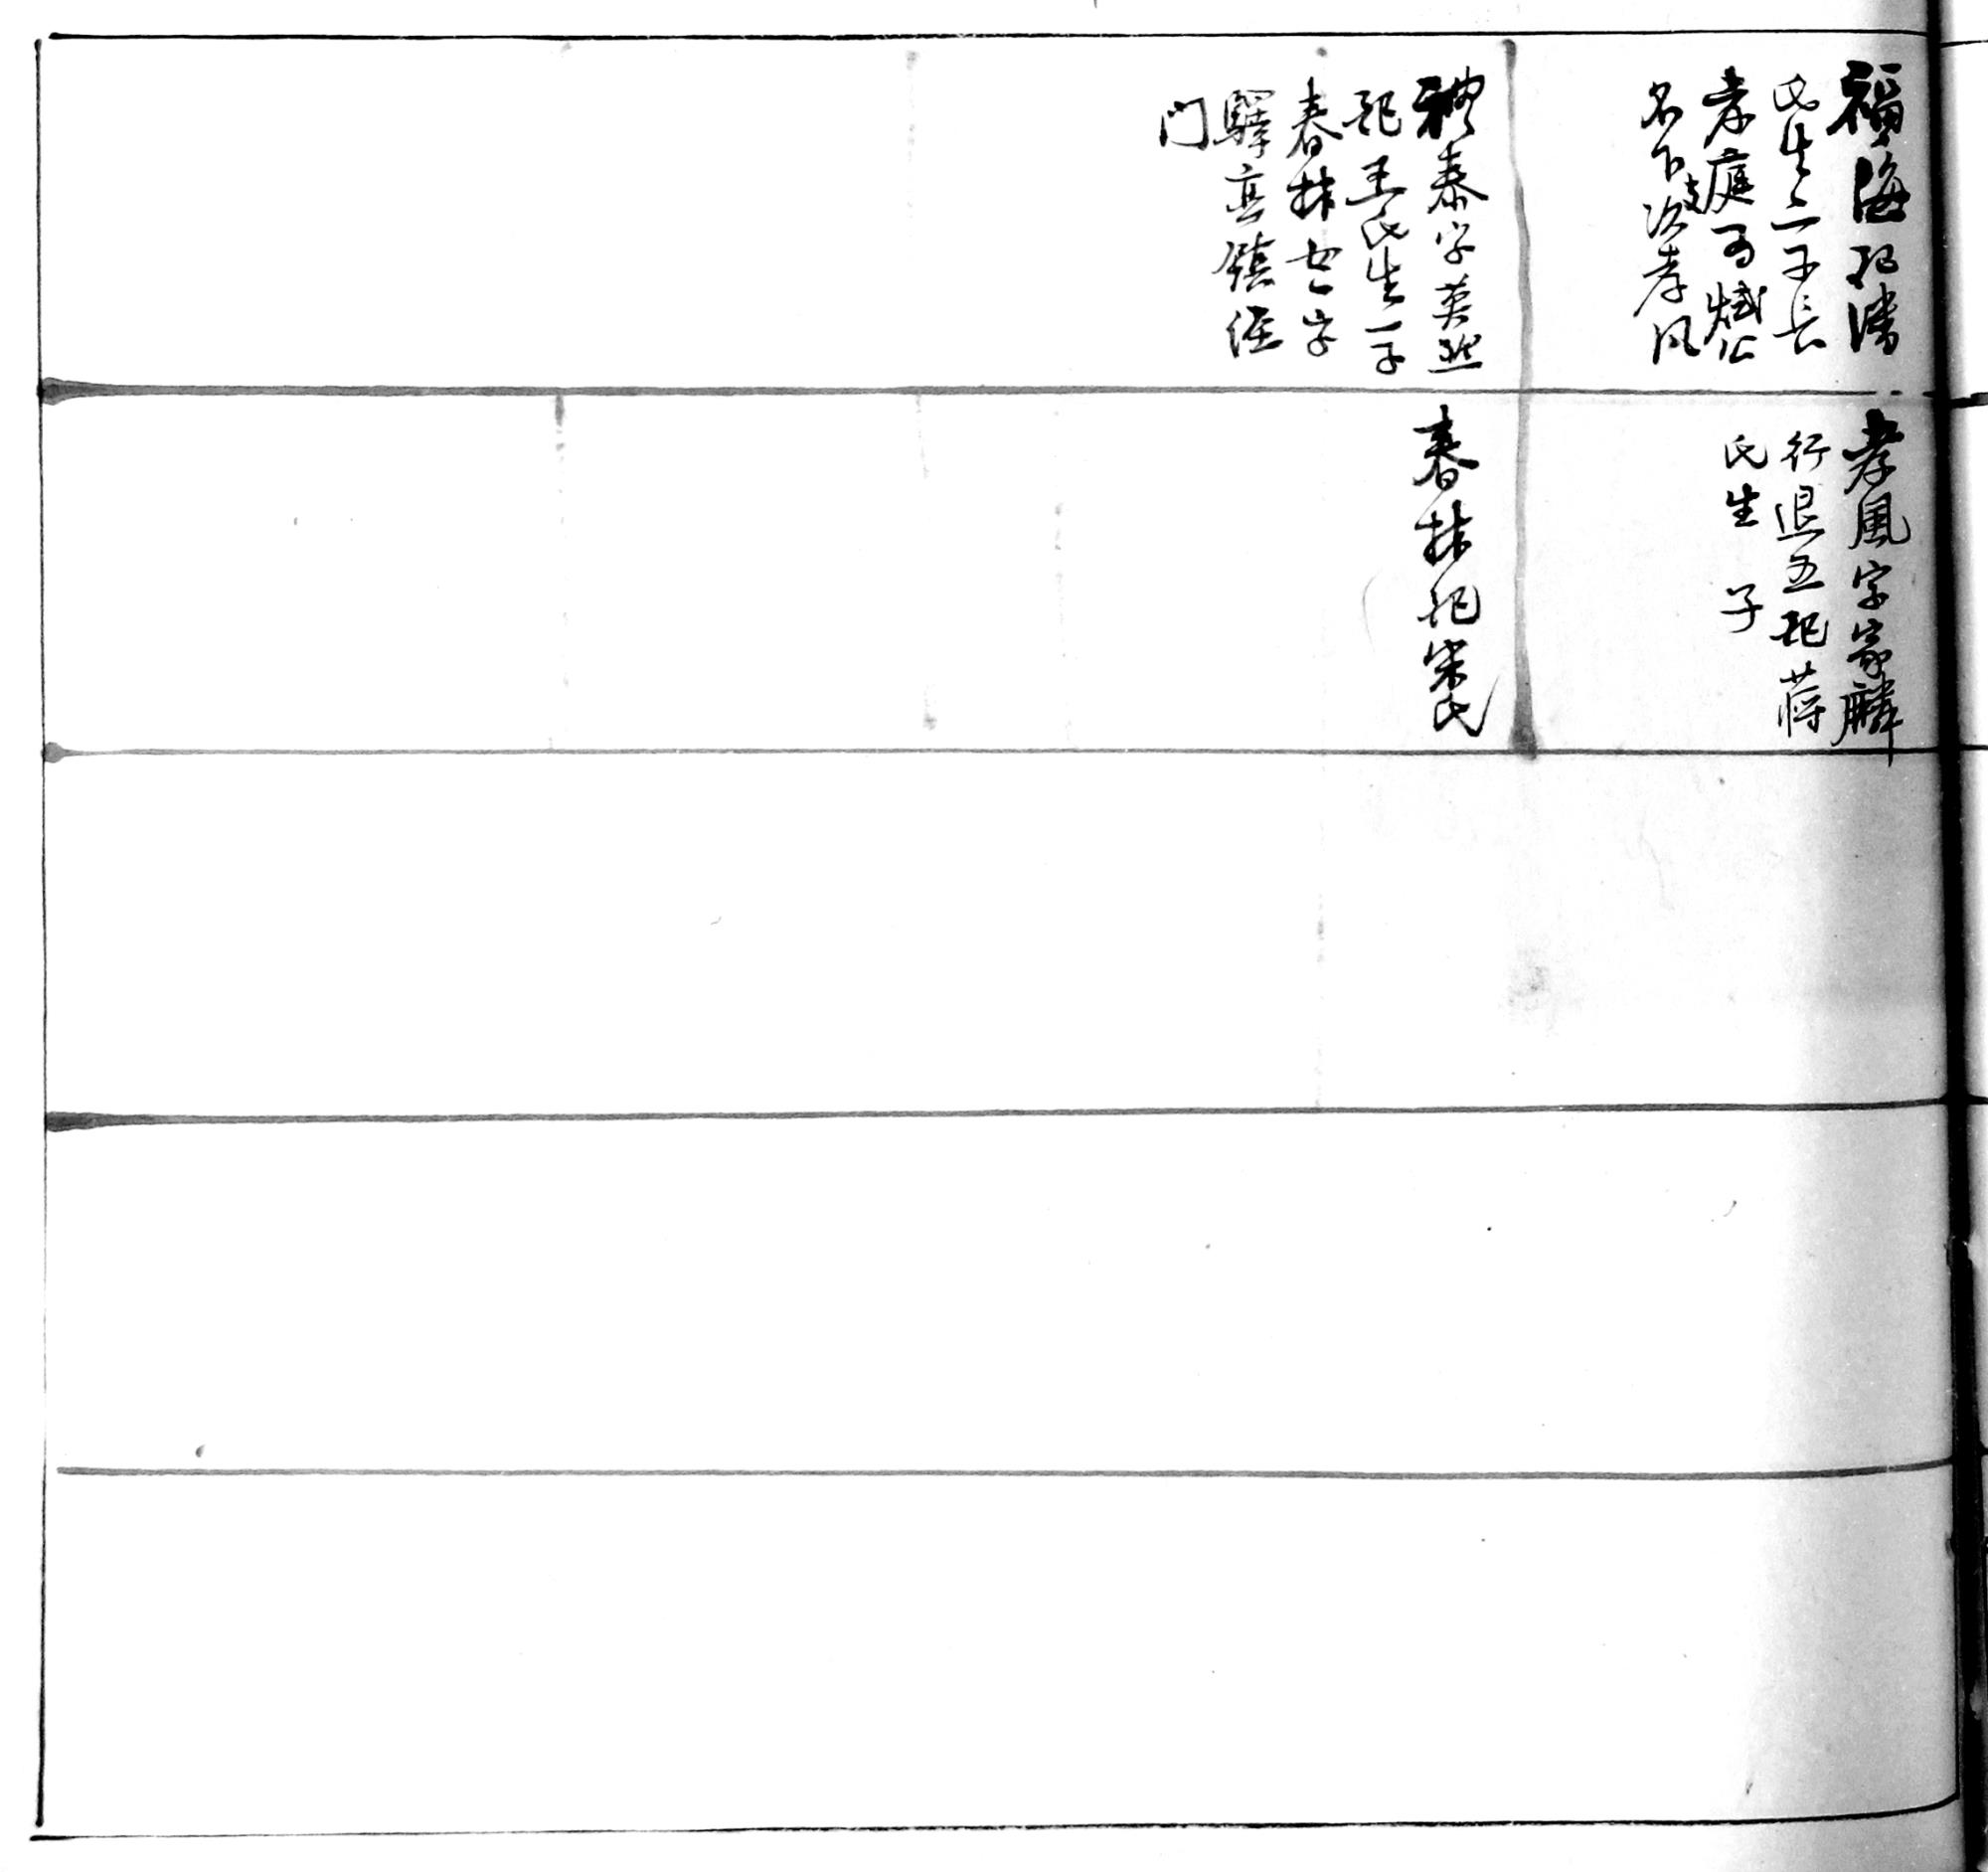 福海配潘
氏生二子長
孝庭可斌公
名下支次孝风
孝風字家麟
行退五配蒋
氏生 子
泰字英熙
配王氏生一子
春林女一字
驛亭鎮任
门
春林配宋氏